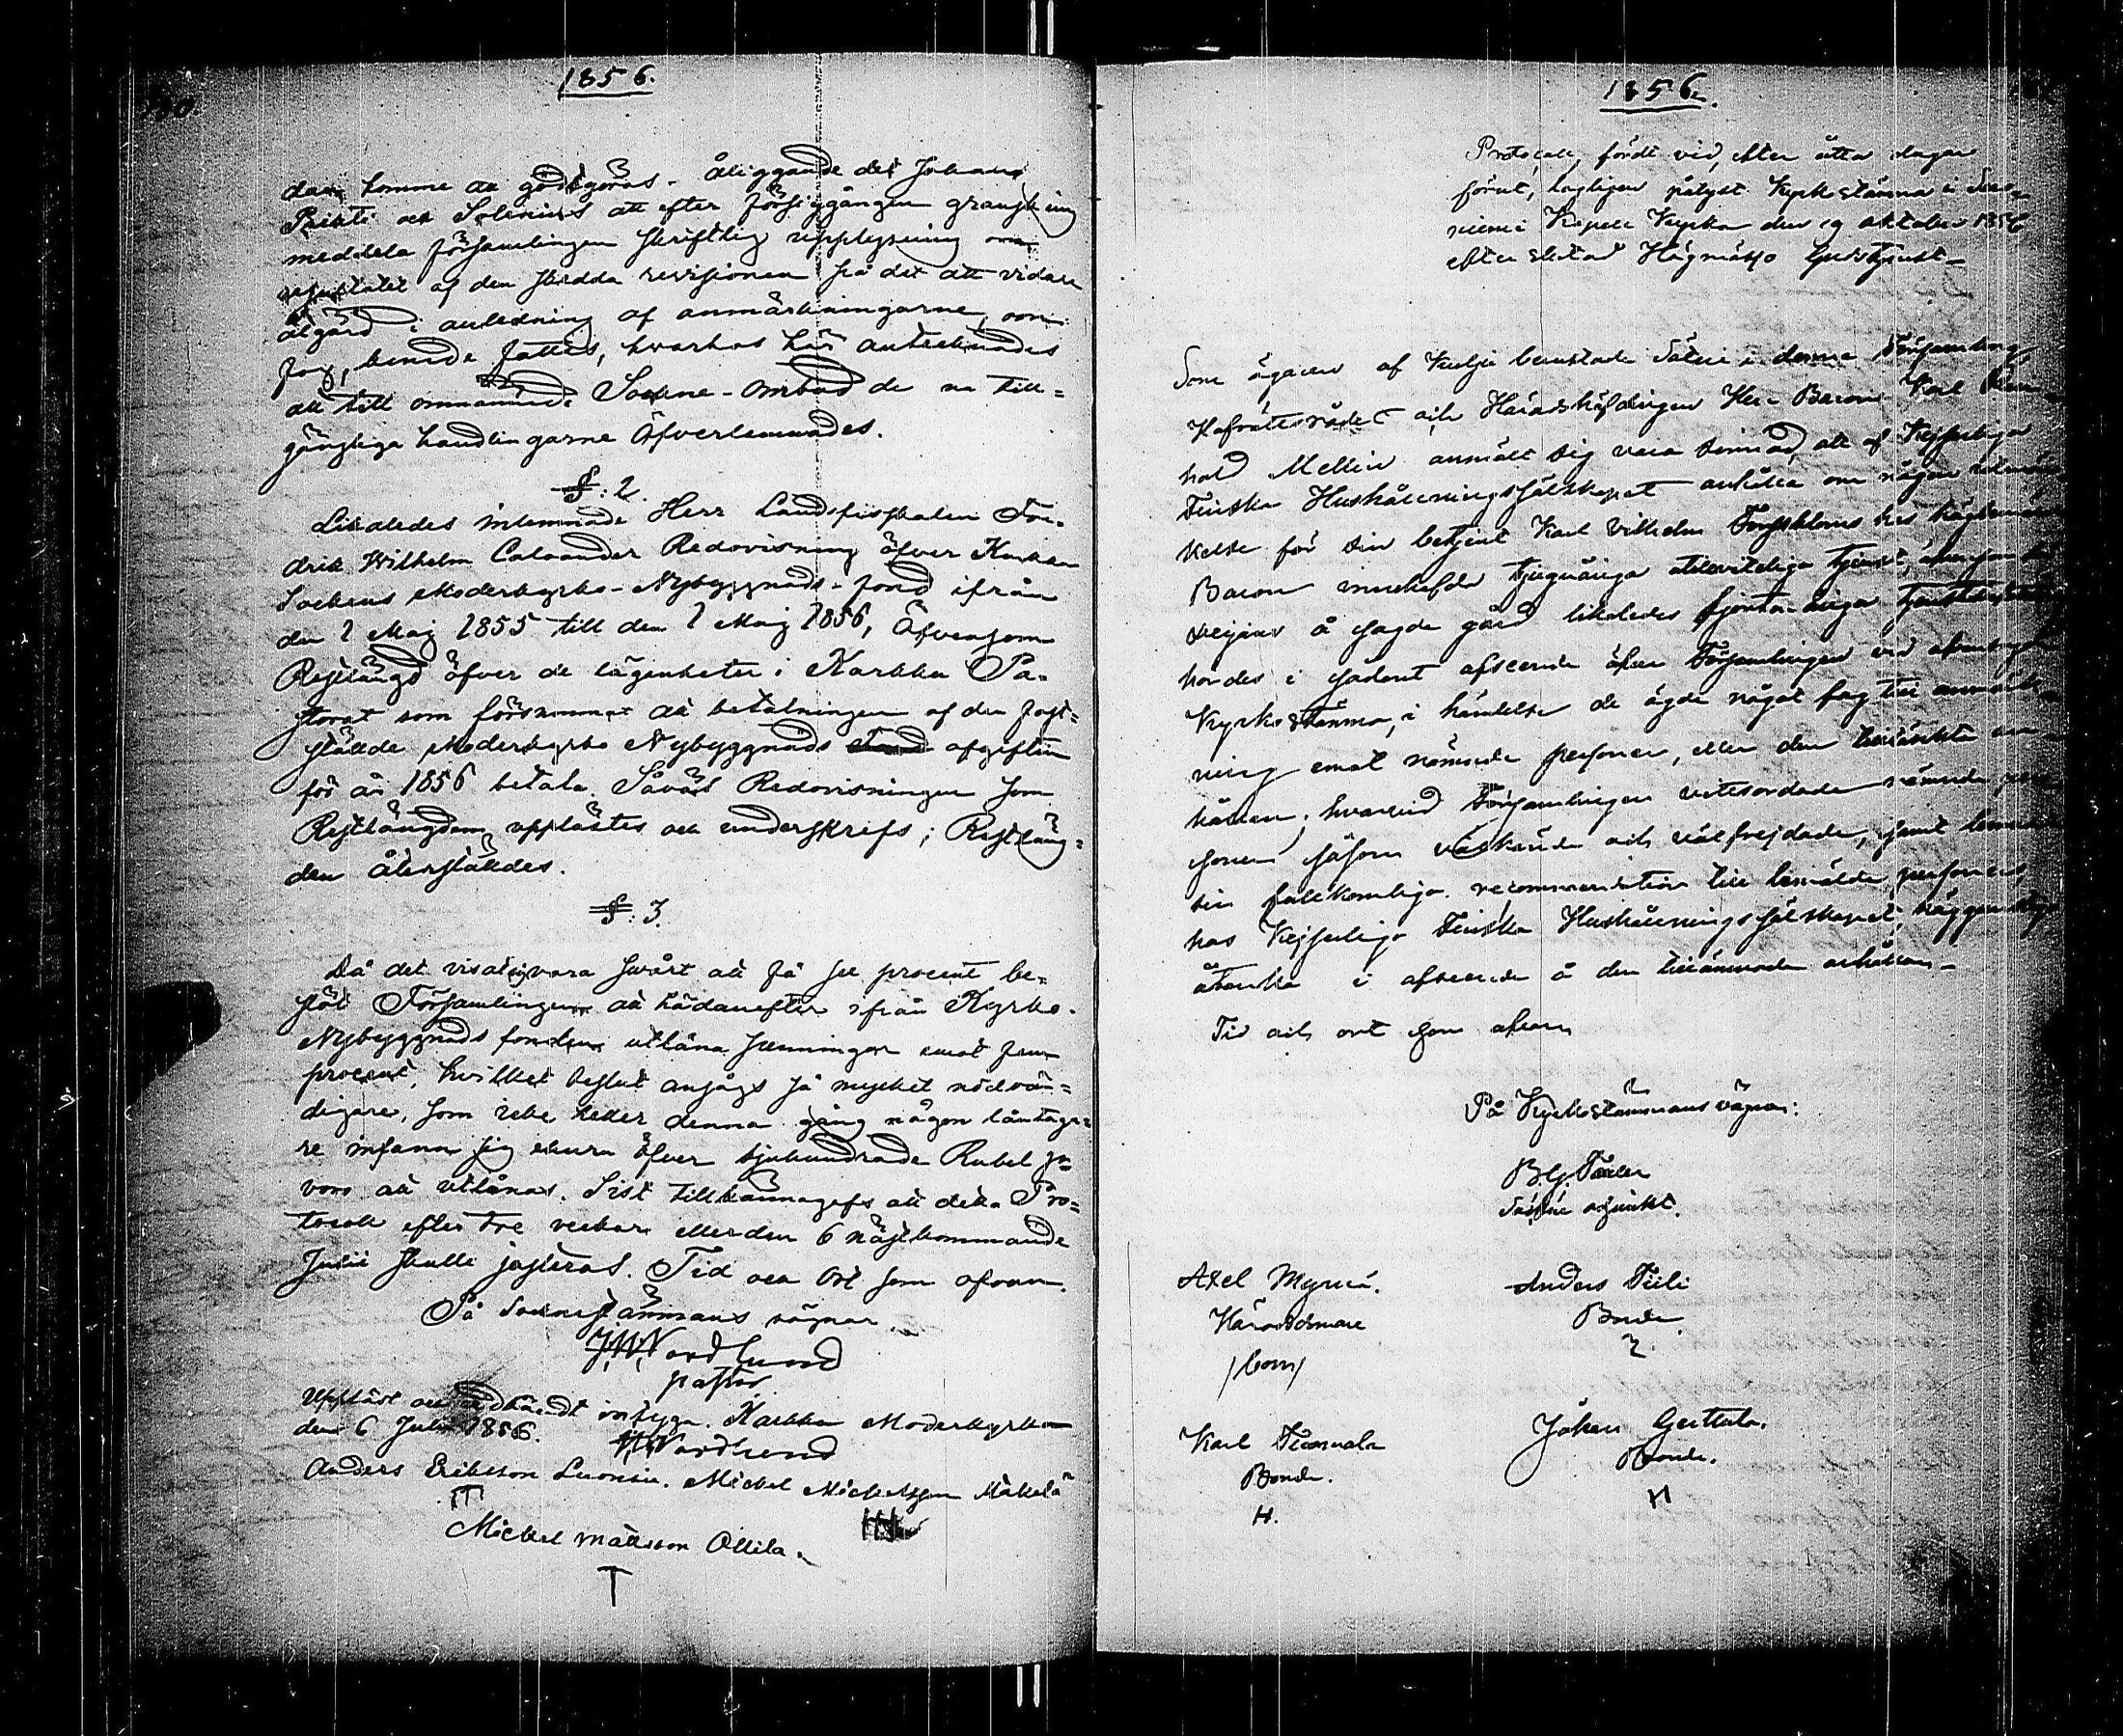 1856.
dan komme att godtgöras. åliggande det Johans
Prikti och Solenius att efter försiggången granskning
meddela församlingen skriftlig upplysning om
resultatet af den skedda revisionen på det att vidare
åtgärd i anledning af anmärkningarne, om
så, kunde fattas, hvarhos här antecknades
att till omnämnde Sockne-ombud de nu till-
gängliga handlingarne öfverlemnades.
§: 2.
Likaledes inlemnade Herr Landsfiskalen Fre-
drik Wilhelm Calonder Redovisning öfver Karkku
Sockens Moderkyrko-Nybyggnads-fond ifrån
den 1 Maj 1855 till den 1 Maj 1856, Äfvensom
Restlängd öfver de lägenheter i Karkku Pa-
storat som försummat att betalningen af den fast-
ställde Moderkyrko Nybyggnads afgiften
för år 1856 betala. Såväl Redovisningen som
Restlängden upplästes och underskrefs; Restläng-
den återställdes.
§: 3.
Då det visat sig vara svårt att få sex procent be-
slöt Församlingen att hädanefter ifrån Kyrko-
Nybyggnads fonden utlåna penningar emot fem
procent, hvilket beslut ansågs så mycket nödvän-
digare, som icke heller denna gång någon låntaga-
re infann sig ehuru öfver sjuhundrade Rubel
voro att utlånas. Sist tillkännagafs att detta Pro-
tocoll efter tre veckor eller den 6 nästkommande
Julii skulle justeras. Tid och Ort som ofvan.
På Sockne stämmans vägnar
J.W. Nordlund
pastor
Uppläst och godkändt intyga. Karkku Moderkyrka
den 6 Julii 1856. Nordlund
Anders Eriksson Luonsi. Mickel Mickelsson Mäkelä
Mickel Mattsson Ollila.
T
1856.
Protocoll, fördt vid, efter åtta dagar
förut, lagligen pålyst Kyrkostämma i
Kapell Kyrka den 19 oktober 1856
efter slutad Högmässo Gudstjenst-
Som ägaren af Kulju benämde Säteri i denna Församling,
Hofrättsrådet och Häradshöfdingen Herr Baron Karl
hold Mellin anmält sig vara sinnad, att af Kejserliga
Finska Hushållningssällskapet anhålla om någon
kelse för sin betjent Karl Vilhelm hos högbemälde
Baron innehafde tjuguåriga oförvitliga tjenst,
å sagde gård likaledes fjortonåriga
hördes i sådant afseende öfver Församlingen vid ofvansagde
Kyrkostämma, i händelse de ägde något sag till anmärk-
ning emot nämnde personer, eller den tillämnade
hållan; hvarvid Församlingen vitsordade nämnde per-
soner såsom välkände och välfrejdade, samt lemnade
sin fullkomliga recommendation till bemälde personer,
hos Kejserliga Finska Hushållningssällskapet,
åtanka i afseende å den tillämnade anhållan-
Tid och ort som ofvan
På Kyrkostämmans vägnar:
B.G.
adjunkt.
Axel Myrrä.
Häradsdomare
/bom/
Anders Tiili
Bonde
Karl
Bonde.
H.
Johan Gerttula.
Bonde.
H